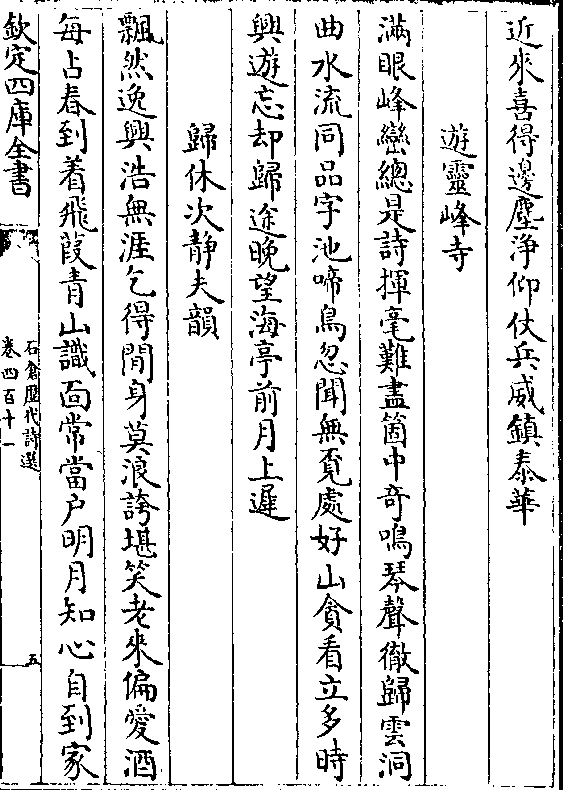 近來喜得邊塵淨仰仗兵威鎮泰華
遊靈峰寺
滿眼峰巒總是詩揮毫難盡箇中奇鳴琴聲徹歸雲洞
曲水流同品字池啼鳥忽聞無覔處好山貪看立多時
興遊忘却歸途晚望海亭前月上遲
歸休次靜夫韻
飄然逸興浩無涯乞得閒身莫浪誇堪笑老來偏愛酒
每占春到着飛葭青山識面常當户明月知心自到家
欽定四庫全書
石倉歷代詩選
卷四百十一
五